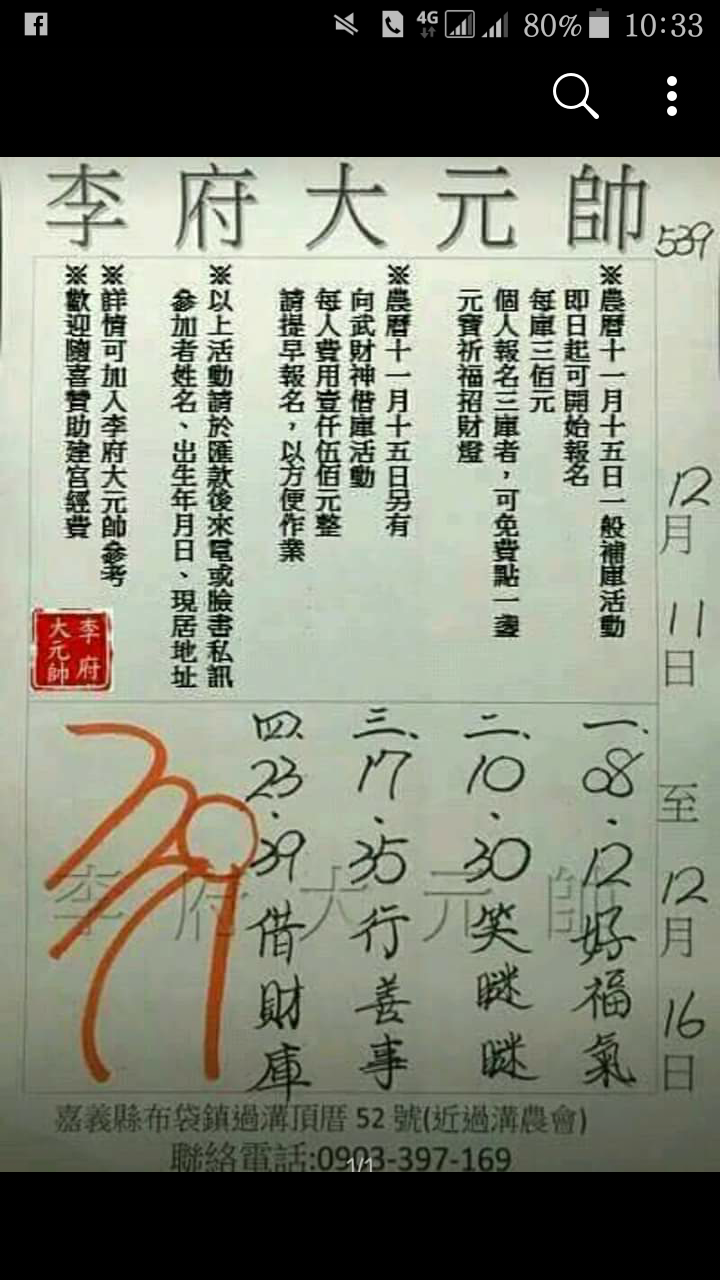 4G 80% 10:33
李府大元帥
539
12月11日至12月16日
※農曆十一月十五日一般補庫活動
即日起可開始報名
每庫三佰元
個人報名三庫者，可免費點一盞
元寶祈福招財燈
※農曆十一月十五日另有
向武財神借庫活動
每人費用壹仟伍佰元整
請提早報名，以方便作業
※以上活動請於匯款後來電或臉書私訊
參加者姓名、出生年月日、現居地址
※詳情可加入李府大元帥參考
※歡迎隨喜贊助建宮經費
李府
大元帥
一、08、12好福氣
二、10、30笑瞇瞇
三、17、35行善事
四、23、39借財庫
李府大元帥
嘉義縣布袋鎮過溝頂厝 52 號(近過溝農會)
聯絡電話:0903-397-169
1/1